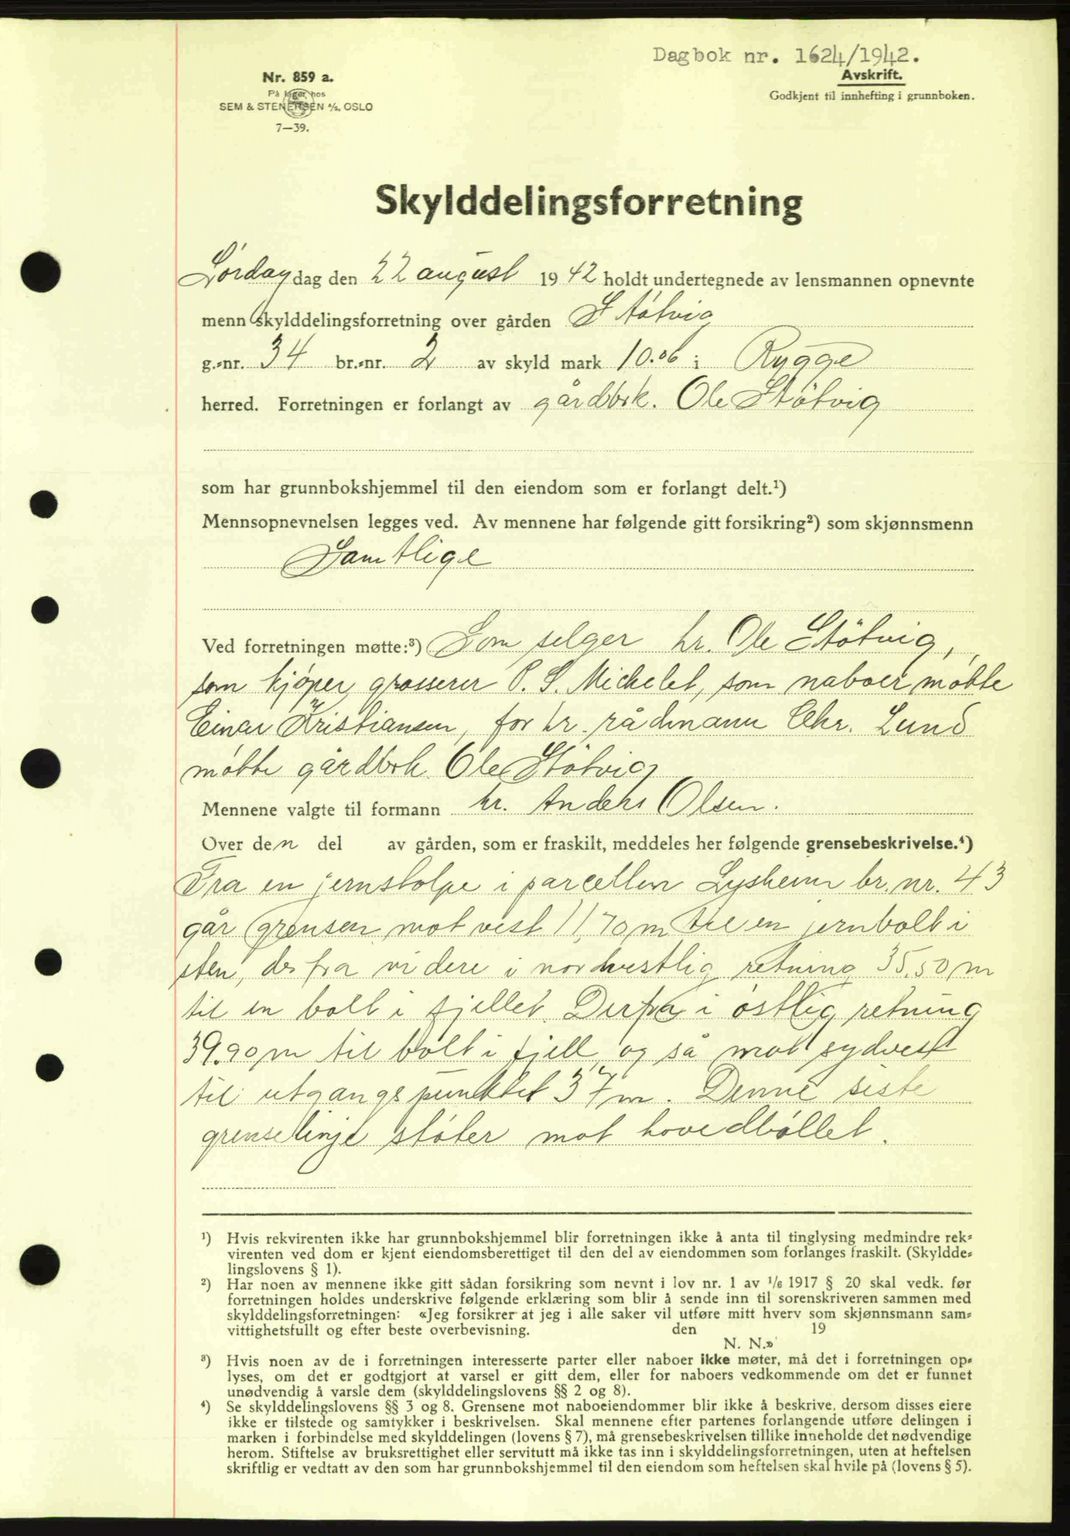 Dagbok nr. 1624/1942.
Nr. 859 a.
Avskrift.
På lager hos
Godkjent til innhefting i grunnboken.
SEM & STENERSEN A/S. OSLO
7—39.
Skylddelingsforretning
Lørdag dag den 22 august 1942 holdt undertegnede av lensmannen opnevnte
menn skylddelingsforretning over gården Støtvig
g.-nr. 34 br.-nr. 2 av skyld mark 10.06 i Rygge
herred. Forretningen er forlangt av gårdbrk. Ole Støtvig
som har grunnbokshjemmel til den eiendom som er forlangt delt.¹)
Mennsopnevnelsen legges ved. Av mennene har følgende gitt forsikring²) som skjønnsmenn
Samtlige
Ved forretningen møtte:³) Som selger hr. Ole Støtvig,
som kjøper grosserer P. S. Michelet, som naboer møtte
Einar Kristiansen, for hr. rådmann Chr. Lund
møtte gårdbrk. Ole Støtvig
Mennene valgte til formann hr. Anders Olsen.
Over den del av gården, som er fraskilt, meddeles her følgende grensebeskrivelse.⁴)
Fra en jernstolpe i parcellen Lysheim br. nr. 43
går grensen mot vest 11,70 m til en jernbolt i
sten, derfra videre i nordvestlig retning 35,50 m
til en bolt i fjellet. Derfra i østlig retning
39.90 m til bolt i fjell og så mot sydvest
til utgangspunktet 37 m. Denne siste
grenselinje støter mot hovedbøllet.
¹) Hvis rekvirenten ikke har grunnbokshjemmel blir forretningen ikke å anta til tinglysing medmindre rek-
virenten ved dom er kjent eiendomsberettiget til den del av eiendommen som forlanges fraskilt. (Skyldde-
lingslovens § 1).
²) Har noen av mennene ikke gitt sådan forsikring som nevnt i lov nr. 1 av 1/6 1917 § 20 skal vedk. før
forretningen holdes underskrive følgende erklæring som blir å sende inn til sorenskriveren sammen med
skylddelingsforretningen: «Jeg forsikrer at jeg i alle saker vil utføre mitt hverv som skjønnsmann sam-
vittighetsfullt og efter beste overbevisning. den 19
N. N.»
³) Hvis noen av de i forretningen interesserte parter eller naboer ikke møter, må det i forretningen op-
lyses, om det er godtgjort at varsel er gitt dem, eller for naboers vedkommende om det er funnet
unødvendig å varsle dem (skylddelingslovens §§ 2 og 8).
⁴) Se skylddelingslovens §§ 3 og 8. Grensene mot naboeiendommer blir ikke å beskrive, dersom disses eiere
ikke er tilstede og samtykker i beskrivelsen. Skal mennene efter partenes forlangende utføre delingen i
marken i forbindelse med skylddelingen (lovens § 7), må grensebeskrivelsen tillike inneholde det nødvendige
herom. Stiftelse av bruksrettighet eller servitutt må ikke tas inn i skylddelingsforretningen, uten at heftelsen
skriftlig er vedtatt av den som har grunnbokshjemmel til den eiendom som heftelsen skal hvile på (lovens § 5).